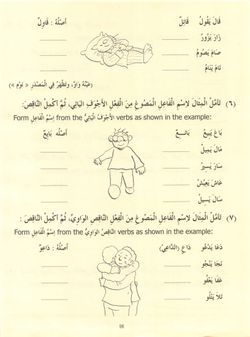 قَالَ يَقُولُ قَائِلٌ أَصْلُهُ : قَاوِلٌ
زَارَ يَزُورُ
صَامَ يَصُومُ
نَامَ يَنَامُ
(عَيْنُهُ وَاوٌ، وَتَظْهَرُ فِي الْمَصْدَرِ « نَوْم »)
(٦) تَأَمَّلِ الْمِثَالَ لِاسْمِ الْفَاعِلِ الْمَصُوغِ مِنَ الْفِعْلِ الْأَجْوَفِ الْيَائِيِّ، ثُمَّ أَكْمِلِ النَّاقِصَ:
Form اِسْمُ الْفَاعِلِ from the الْأَجْوَفُ الْيَائِيُّ verbs as shown in the example:
بَاعَ يَبِيعُ بَائِعٌ أَصْلُهُ : بَايِعٌ
مَالَ يَمِيلُ
سَارَ يَسِيرُ
عَاشَ يَعِيشُ
سَالَ يَسِيلُ
(٧) تَأَمَّلِ الْمِثَالَ لِاسْمِ الْفَاعِلِ الْمَصُوغِ مِنَ الْفِعْلِ النَّاقِصِ الْوَاوِيِّ، ثُمَّ أَكْمِلِ النَّاقِصَ:
Form اِسْمُ الْفَاعِلِ from the النَّاقِصُ الْوَاوِيُّ verbs as shown in the example:
دَعَا يَدْعُو دَاعٍ (الدَّاعِي) أَصْلُهُ : دَاعِوٌ
نَجَا يَنْجُو
عَفَا يَعْفُو
تَلَا يَتْلُو